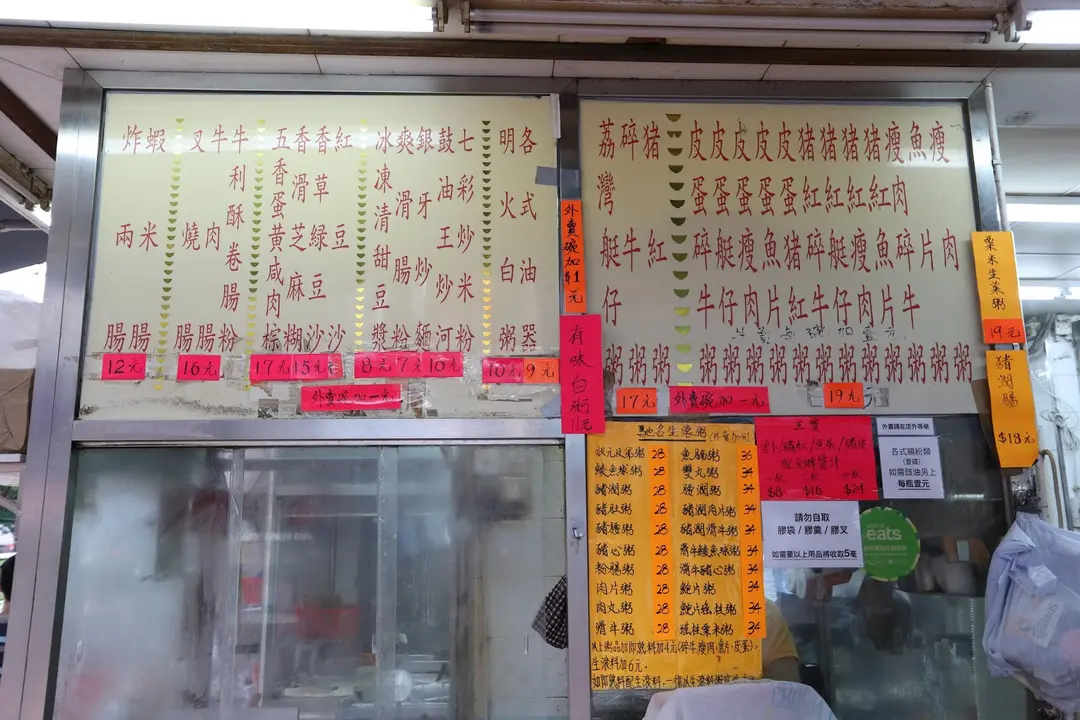 各式油器
明火白粥
七彩炒米粉
鼓油王炒河
銀牙炒麵
爽滑腸粉
冰凍清甜豆漿
紅豆沙
香草綠豆沙
香滑芝麻糊
五香蛋黄咸肉粽
牛利酥卷腸粉
牛肉腸
叉燒腸
蝦米腸
炸兩腸
12元
16元
17元
15元
8元
7元
10元
10元
9元
外賣碗加一元
外賣碗加$1元
有味白粥11元
瘦肉粥
魚片粥
瘦肉碎牛粥
豬紅魚片粥
豬紅瘦肉粥
豬紅艇仔粥
豬紅碎牛粥
皮蛋豬紅粥
皮蛋魚片粥
皮蛋瘦肉粥
皮蛋艇仔粥
皮蛋碎牛粥
豬紅粥
碎牛粥
荔灣艇仔粥
17元
外賣碗加一元
19元
粟米生菜粥
19元
豬潤腸
$13元
馳名生滾粥
狀元及第粥 28 魚腩粥 36
鯪魚球粥 28 雙丸粥 34
豬潤粥 28 腸潤粥 34
豬肚粥 28 豬潤肉片粥 34
豬腰粥 28 豬潤滑牛粥 34
豬心粥 28 滑牛鯪魚球粥 34
粉腸粥 28 滑牛豬心粥 34
肉片粥 28 鮑片粥 34
肉丸粥 28 鮑片瑤柱粥 34
滑牛粥 28 瑤柱粟米粥 34
以上粥品加即熟料加4元(碎牛·瘦肉·魚片·皮蛋),
生滾料加6元.
三寶
$8 $16 $24
外賣請在店外等候
各式腸粉類
(壹碟)
如需豉油另上
每瓶壹元
請勿自取
膠袋 / 膠羹 / 膠叉
如需要以上用品將收取5毫
eats